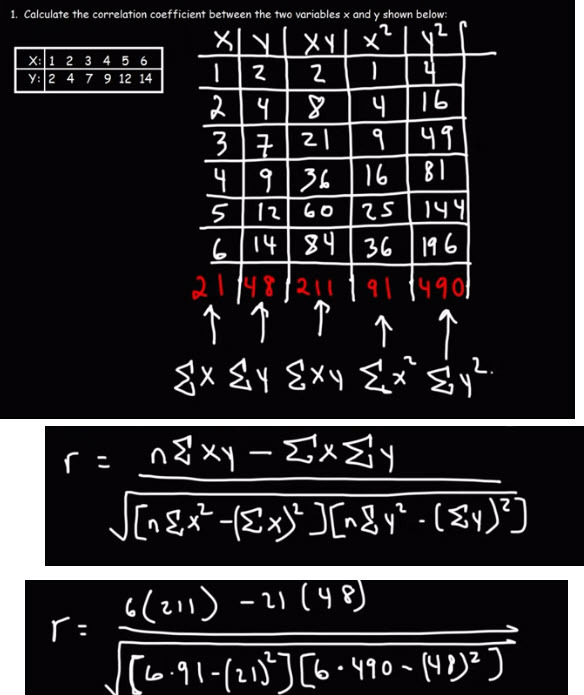 1. Calculate the correlation coefficient between the two variables x and y shown below:
X: 1 2 3 4 5 6
Y: 2 4 7 9 12 14
X Y XY X² Y²
1 2 2 1 4
2 4 8 4 16
3 7 21 9 49
4 9 36 16 81
5 12 60 25 144
6 14 84 36 196
21 48 211 91 490
↑ ↑ ↑ ↑ ↑
Σx Σy Σxy Σx² Σy².
r = nΣxy - ΣxΣy
√[nΣx² - (Σx)²][nΣy² - (Σy)²]
r = 6(211) - 21(48)
√[6·91-(21)²][6·490-(48)²]